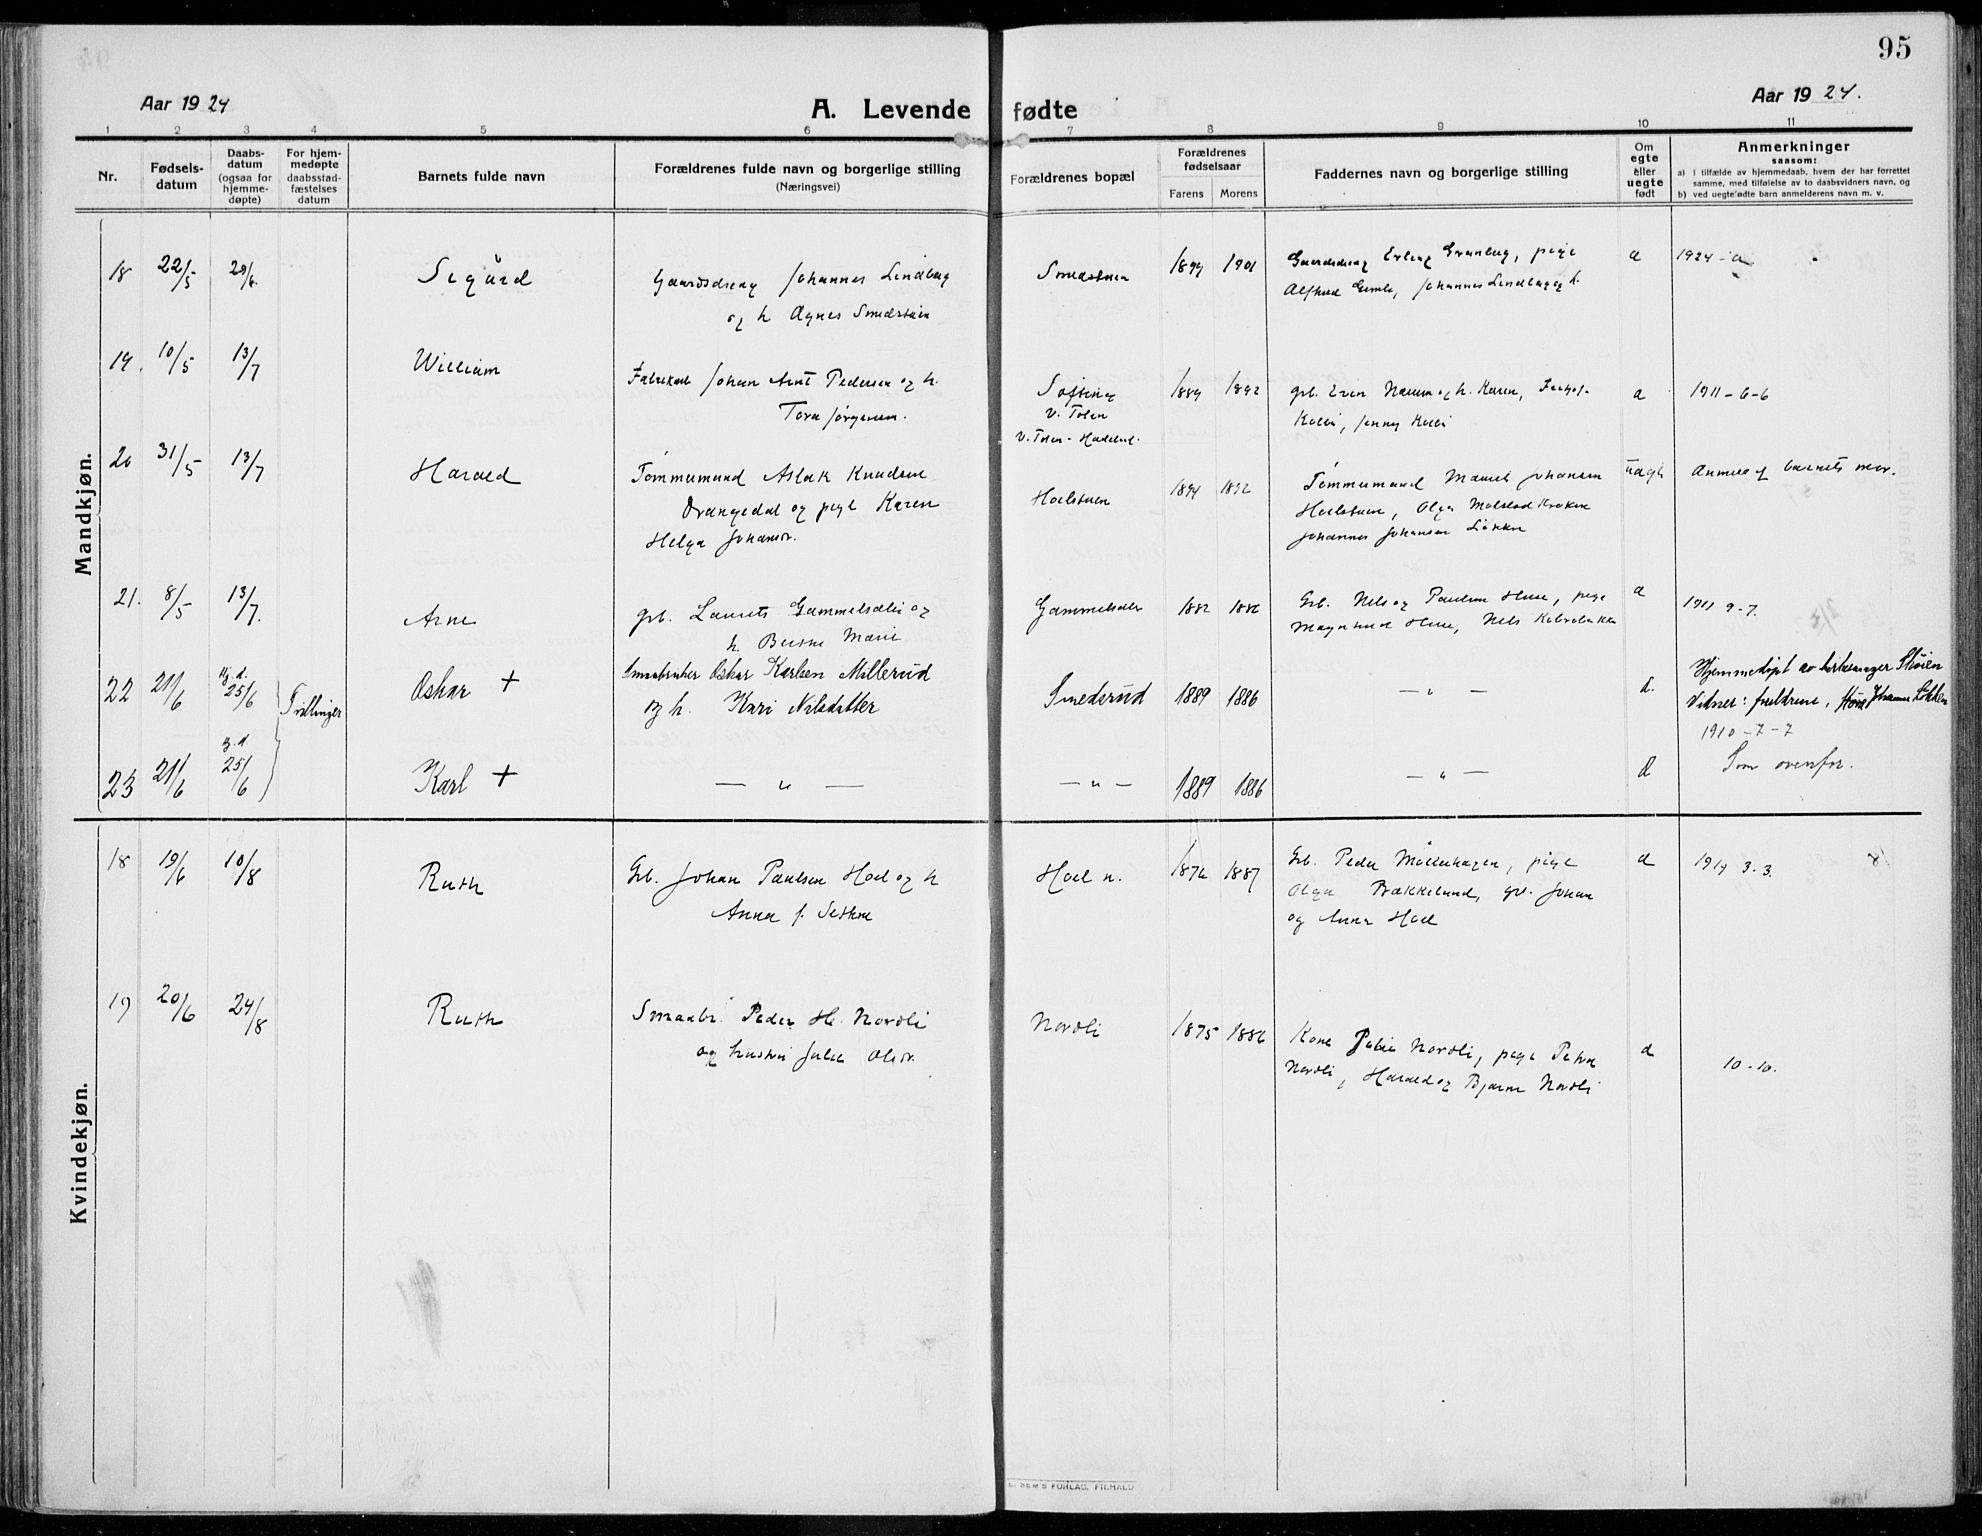 95
Aar 1924
A. Levende fødte
Aar 1924.
1 2 3 4 5 6 7 8 9 10 11
Nr.
Fødsels-
datum
Daabs-
datum
(ogsaa for
hjemme-
døpte)
For hjem-
medøpte
daabsstad-
fæstelses
datum
Barnets fulde navn
Forældrenes fulde navn og borgerlige stilling
(Næringsvei)
Forældrenes bopæl
Forældrenes
fødselsaar
Farens Morens
Faddernes navn og borgerlige stilling
Om
egte
eller
uegte
født
Anmerkninger
saasom:
a) I tilfælde av hjemmedaab, hvem der har forrettet
samme, med tilføielse av to daabsvidners navn, og
b) ved uegtefødte barn anmelderens navn m. v.
Mandkjøn.
18 22/5 29/6 Sigurd Gaardsdreng Johannes Lindberg
og h Agnes Smedstuen
Smedstuen 1899 1901 Gaardsdreng Erling Granberg, pige
Alfhild Gimle, Johannes Lindberg og h.
a 1924 - a
19. 10/5 13/7 William Fabrikarb Johan Arnt Pedersen og h.
Tora Jørgensen.
V. Toten
V. Toten - Hadeland.
1889 1892 grb. Even Narum og h. Karen,
Kolbi, Jenny Kolbi
a 1911-6-6
20 31/5 13/7 Harald Tømmermand Aslak Knudsen
Drangedal og pige Karen
Helga Johansen.
Hoelstuen 1894 1892 Tømmermand Maurits Johansen
Hoelstuen, Olga Molstad Kroken
Johannes Johansen Løkken
uegte Anmeld af barnets mor.
21. 8/5 13/7. Arne grb. Laurits Gammelsæter og
h. Berthe Marie
1882 1886 Grb. Nels og Pauline Huse, pige
Magnhild Huse, Nels
a 1911 9-7.
22 21/6 Hj. d. 25/6 Trillinger Oskar + Smaabruker Oskar Karlsen Millerud
og h. Kari Nilsdatter
Smedsrud 1889 1886 — " — d.
Hjemmedøpt av kirkesanger Støien
Vidner: foreldrene, Johanne Løkken
1910-7-7
23 21/6 Hj. d. 25/6 Karl + — " — — " — 1889 1886 — " — d Som ovenfor.
Kvindekjøn.
18 19/6 10/8 Ruth Grb. Johan Paulsen Hoel og h
Anna f. Sethne
Hoel n. 1876 1887 Grb. Peder Møllerhagen, pige
Olga Bækkelund, grb. Johan
og Anna Hoel
d 1919 3-3.
19 20/6 24/8 Ruth Smaabr. Peder H. Nordli
og hustru Julie Olsdr.
Nordli 1875 1886 Kone Julie Nordli, pige Petra
Nordli, Harald og Bjarne Nordli
d 10-10.
SEM'S FORLAG, FR.HALD